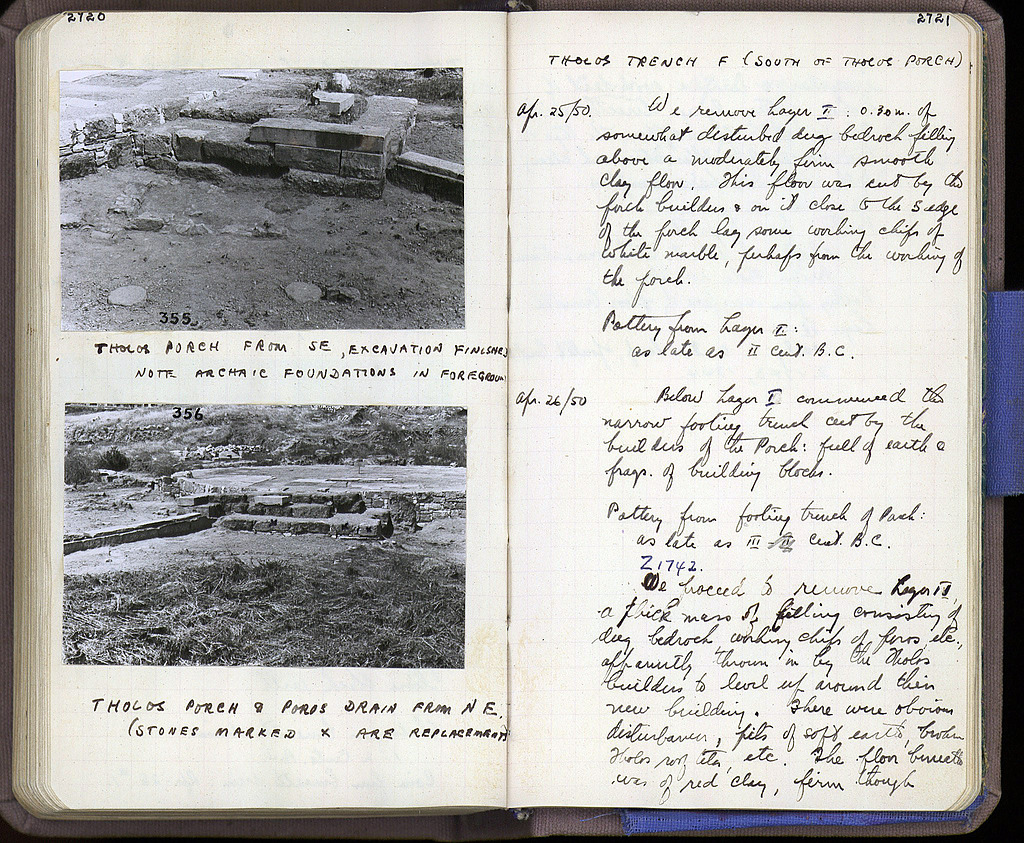 2720
355
THOLOS PORCH FROM SE, EXCAVATION FINISHED
NOTE ARCHAIC FOUNDATIONS IN FOREGROUN
356
THOLOS PORCH & POROS DRAIN FROM NE.
(STONES MARKED X ARE REPLACEMENTS
2721
THOLOS TRENCH F (SOUTH OF THOLOS PORCH)
Apr. 25/50. We remove Layer II : 0.30 m. of
somewhat disturbed dug bedrock filling
above a moderately firm smooth
clay floor. This floor was cut by the
porch builders & on it close to the S edge
of the porch lay some working chips of
white marble, perhaps from the working of
the porch.
Pottery from Layer II :
as late as II cent. B.C.
Apr. 26/50 Below Layer II commenced the
narrow footing trench cut by the
builders of the Porch: full of earth &
frags. of building blocks.
Pottery from footing trench of Porch:
as late as III cent. B.C.
Z 1742.
We proceed to remove Layer III,
a thick mass of filling consisting of
dug bedrock, working chips of poros, etc.,
apparently thrown in by the Tholos
builders to level up around their
new building. There were obvious
disturbances, pits of soft earth, broken
Tholos roof tiles, etc. The floor beneath
was of red clay, firm though